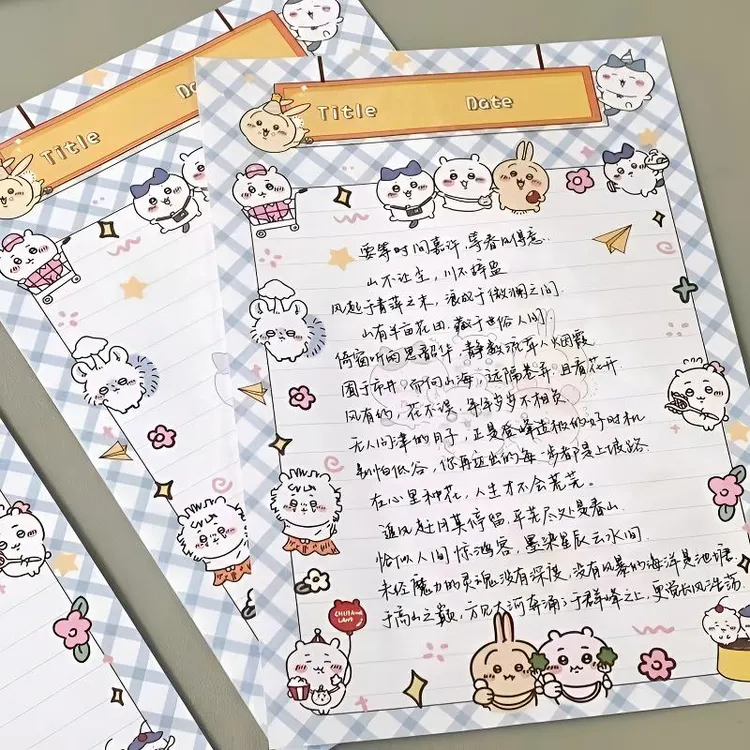 Title
Date
Title
Date
要等时间嘉许,等春风得意.
山不让尘,川不辞盈
风起于青萍之末,浪成于微澜之间.
山有半亩花田,藏于世俗人间
倚窗听雨思韶华,静数流年人烟霞
困于市井,向山海,远隔卷帘,且看花开
风有约,花不误,年年岁岁不相负.
无人问津的日子,正是登峰造极的好时机
别怕低谷,你再迈出的每一步都是上坡路.
在心里种花,人生才不会荒芜.
追风赶月莫停留,平芜尽处是春山.
恰似人间惊鸿客,墨染星辰云水间.
未经魔力的灵魂没有深度,没有风暴的海洋是池塘.
于高山之巅,方见大河奔涌;于群峰之上,更觉长风浩荡.
CHIIKAWA
LAND